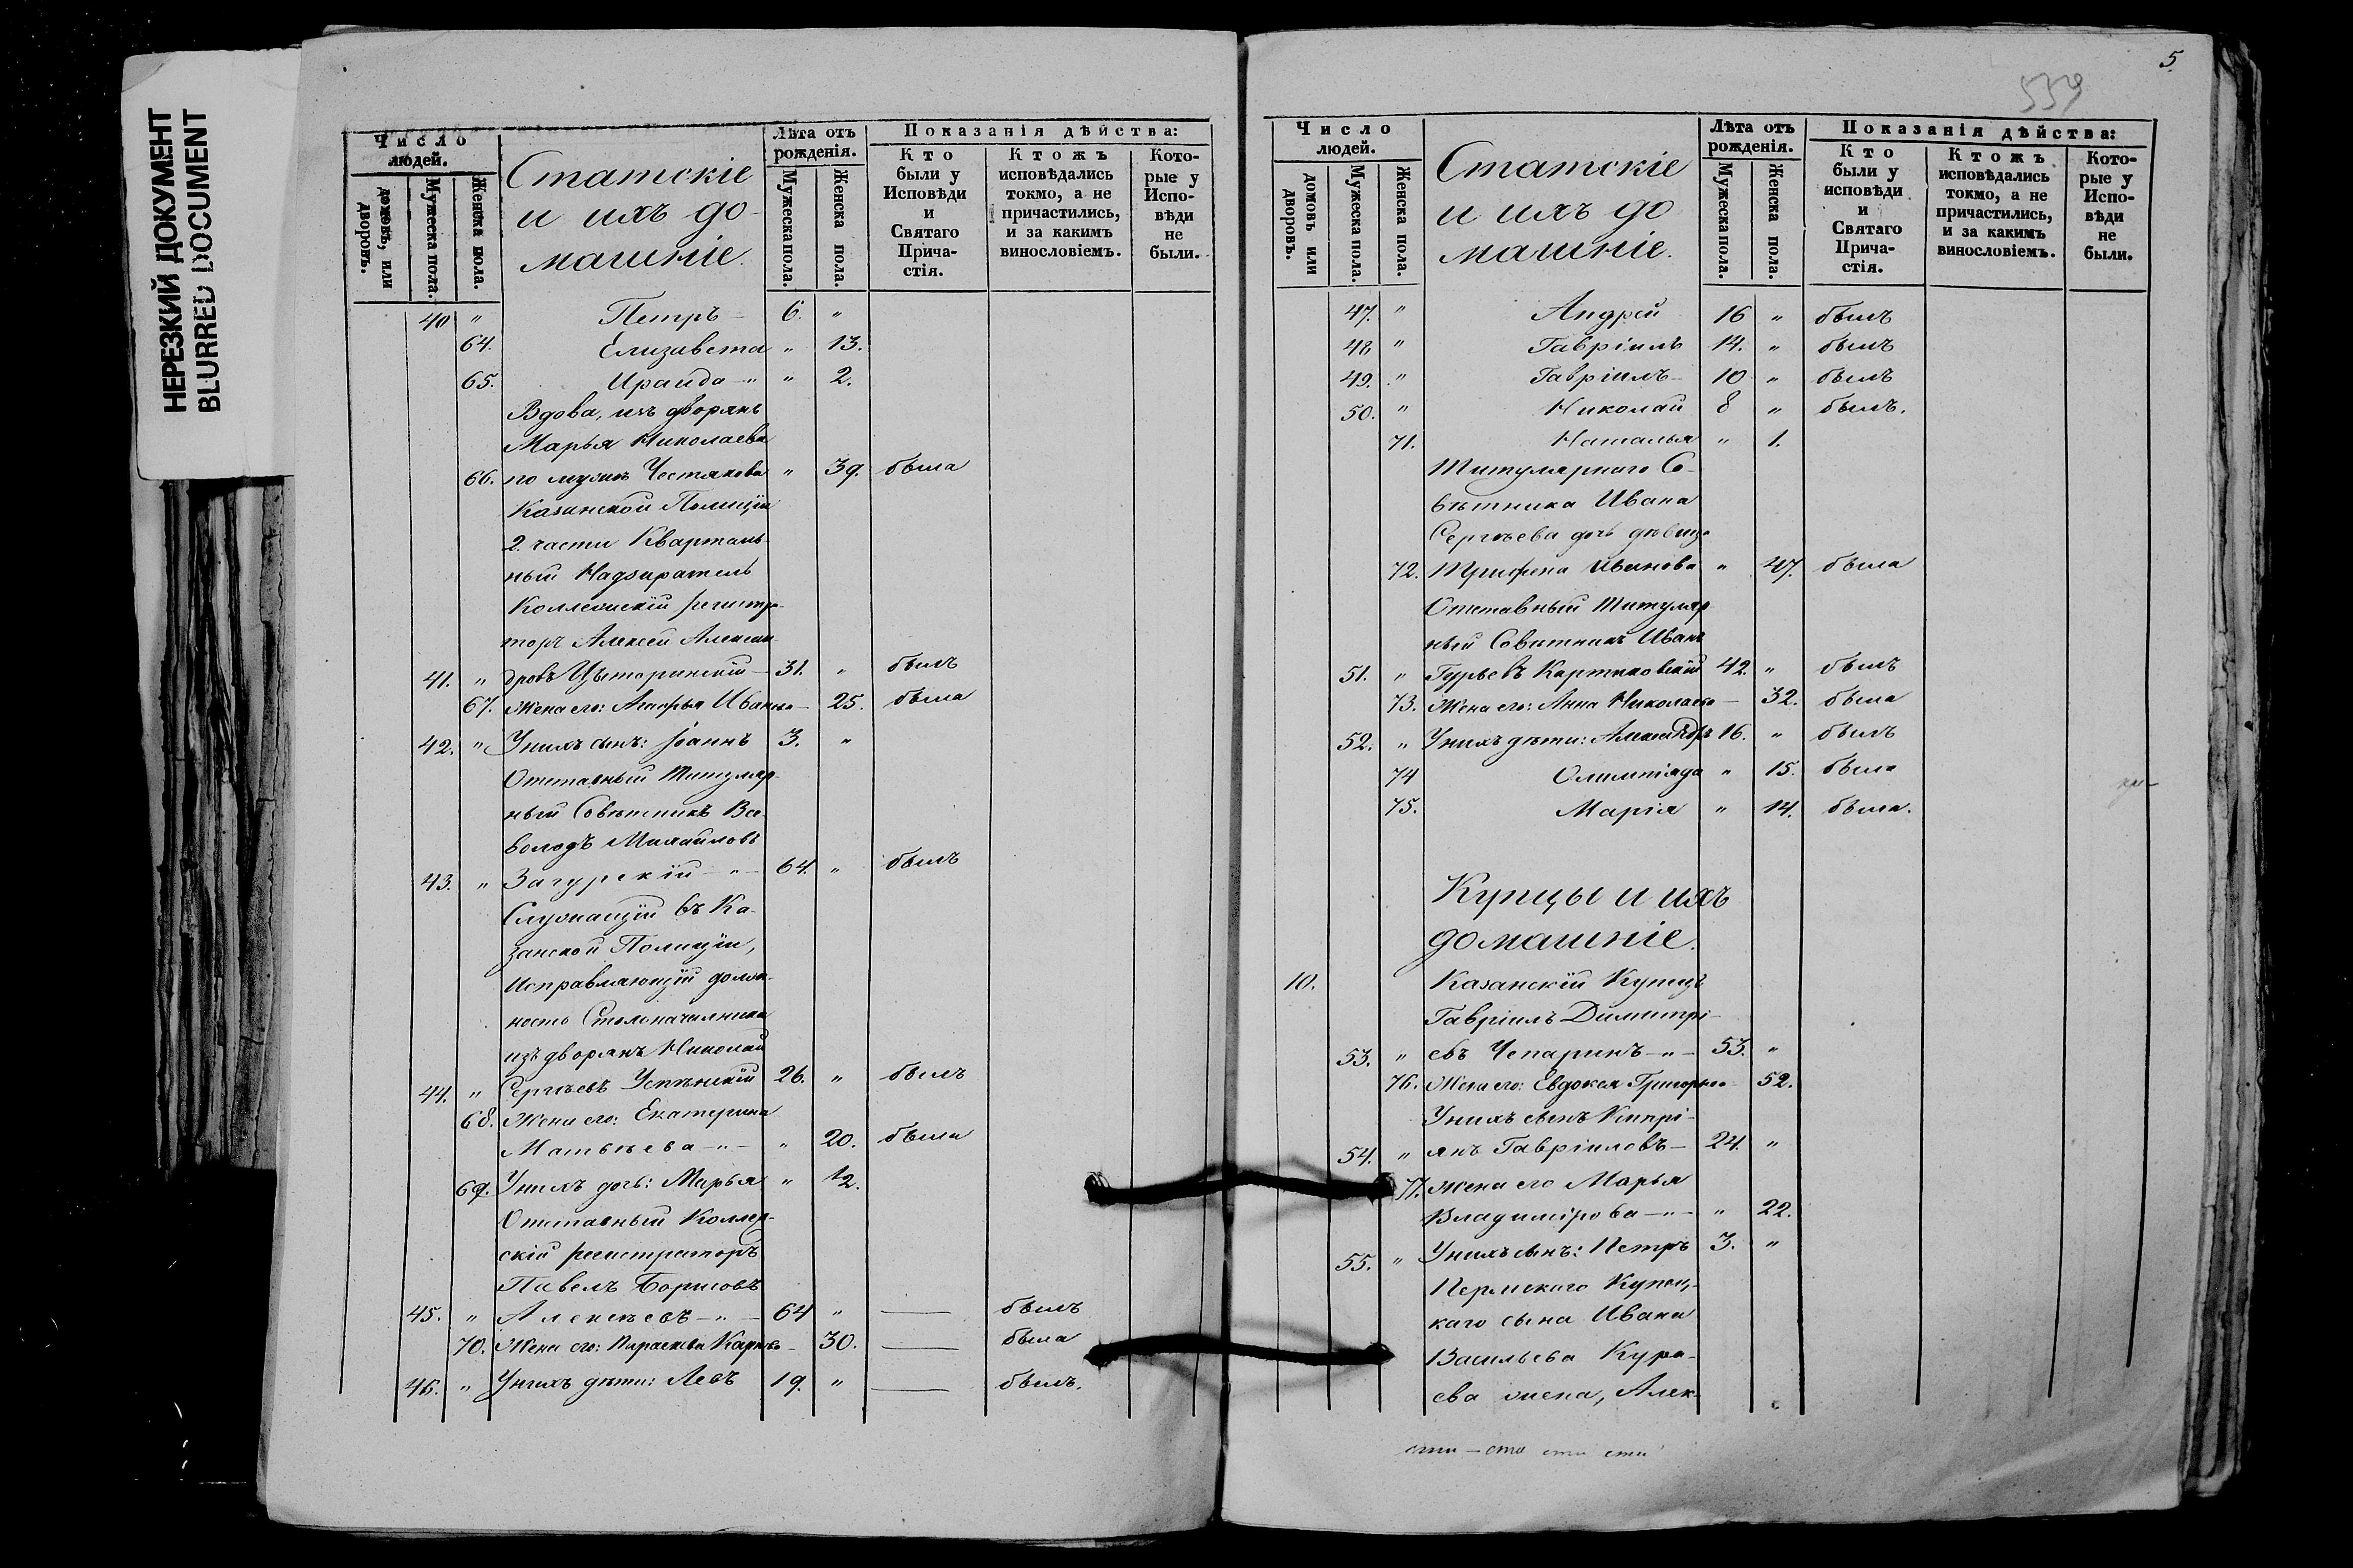 НЕРЕЗКИЙ ДОКУМЕНТ
BLURRED DOCUMENT
Число людей.
домовъ, или дворовъ.
Мужеска пола.
Женска пола.
Статскіе
и ихъ до-
машніе.
Лѣта отъ рожденія.
Мужеска пола.
Женска пола.
Показанія дѣйства:
Кто были у Исповѣди и Святаго Прича-стія.
Ктожъ исповѣдались токмо, а не причастились, и за какимъ винословіемъ.
Кото-рые у Испо-вѣди не были.
40 " Петръ – 6. "
64. Елизавета " 13.
65. Ираида – " " 2.
Вдова, изъ дворянъ
Марья Николаева
66. по мужѣ Честякова " 39. была
Казанской Полиціи
2. части Кварталь-
ный Надзиратель
Коллежскій регистра-
торъ Алексей Алексан-
41. " дровъ 31. " былъ
67. Жена его: Агафья Иванова – 25. была
42. " У нихъ сынъ: Іоаннъ 3. "
Отставный Титуляр-
ный Совѣтникъ Все-
володъ Михайловъ
43. " Загурскій – " – 64. " былъ
Служащій въ Ка-
занской Полиціи,
исправляющій долж-
ность Столоначалника
изъ дворянъ Николай
44. " Сергѣевъ Успѣнскій 26. " былъ
68. Жена его: Екатерина
Матвѣева – " – " 20. была
69. У нихъ дочь: Марья " 1/2.
Отставный Коллеж-
скій регистраторъ
Павелъ Борисовъ
45. " Алексѣевъ – " – 64 " — былъ
70. Жена его: Параскева Карпова – 30. — была
46. " У нихъ дѣти: Левъ 19. " — былъ.
5.
539
Число людей.
домовъ или дворовъ.
Мужеска пола.
Женска пола.
Статскіе
и ихъ до
машніе.
Лѣта отъ рожденія.
Мужеска пола.
Женска пола.
Показанія дѣйства:
Кто были у исповѣди и Святаго Прича-стія.
Ктожъ исповѣдались токмо, а не причастились, и за какимъ винословіемъ.
Кото-рые у Испо-вѣди не были.
47. " Андрей 16 " былъ
48 " Гавріилъ 14. " былъ
49. " Гавріилъ – 10 " былъ
50. " Николай 8 " былъ.
71. Наталья " 1.
Титулярнаго Со-
вѣтника Ивана
Сергѣева дочь дѣвица
72. Трифена Иванова " 47. была
Отставный Титуляр
ный Совѣтникъ Иванъ
51. " Гурьевъ Картиковскій 42. " былъ
73. Жена его: Анна Николаева – 32. была
52. " У нихъ дѣти: Александръ 16. " былъ
74 Олимпіада " 15. была
75. Марія " 14. была.
Купцы и ихъ
домашніе.
10. Казанскій Купецъ
Гавріилъ Димитрі-
53. " евъ Чепаринъ – " – 53. "
76. Жена его: Евдокея Григорьева – 52.
У нихъ сынъ Кипрі-
54. " янъ Гавріиловъ – 24. "
77. Жена его Марья
Владимірова – " – " 22.
55. " У нихъ сынъ: Петръ 3. "
Пермскаго Купец-
каго сына Ивана
Васильева Кура-
ева жена, Алек-